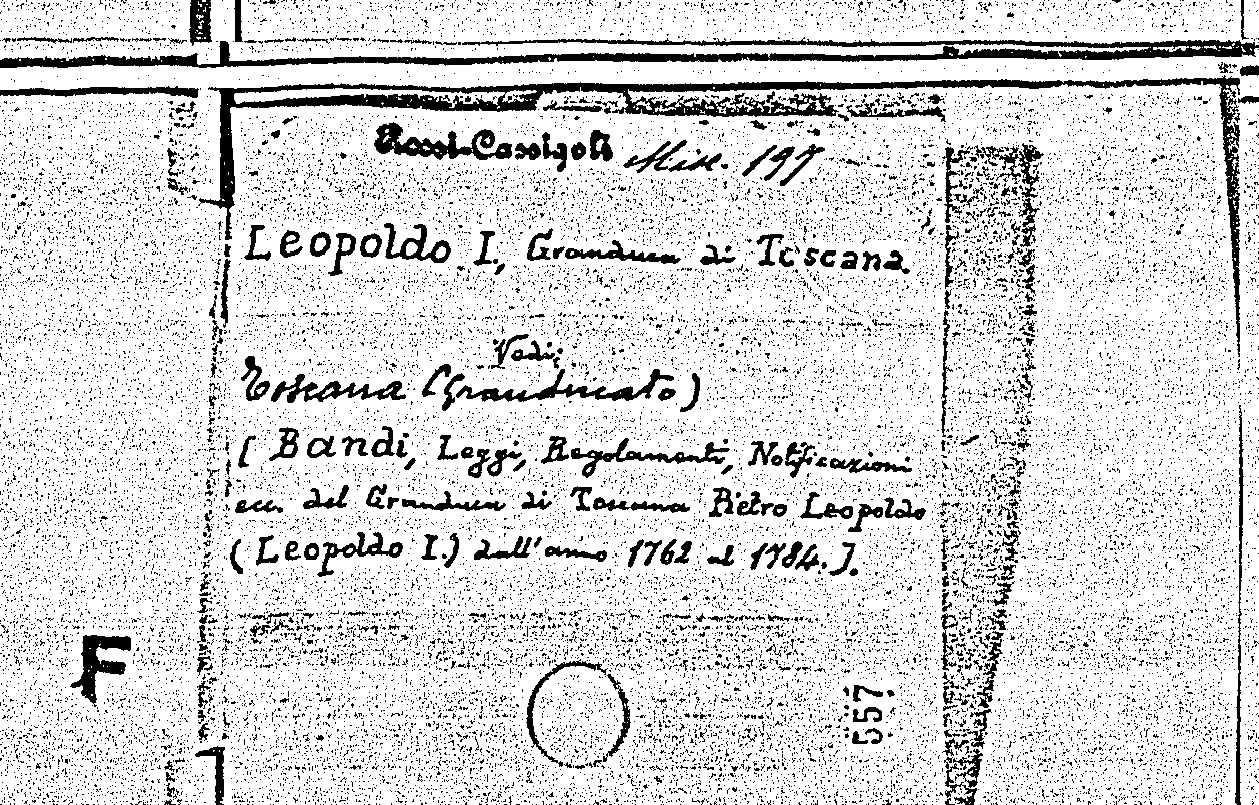 Rossi-Cassigoli Misc. 197
Leopoldo I., Granduca di Toscana.
Vedi:
Toscana (Granducato)
[ Bandi, Leggi, Regolamenti, Notificazioni
ecc. del Granduca di Toscana Pietro Leopoldo
( Leopoldo I.) dall'anno 1762 al 1784.].
F
557